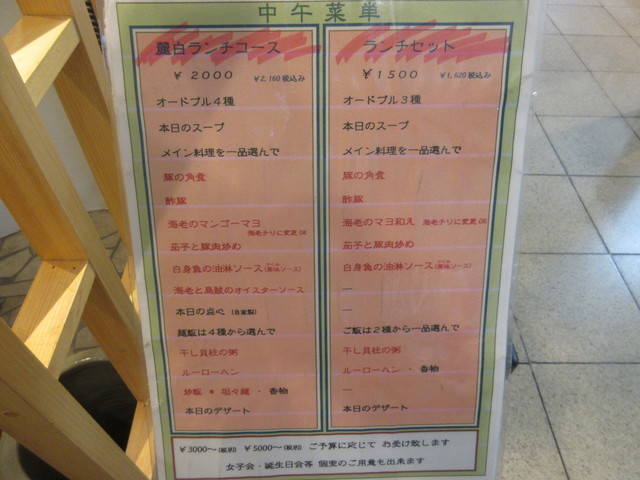 中午菜単
盤白ランチコース
￥2000 ￥2,160税込み
オードブル４種
本日のスープ
メイン料理を一品選んで
豚の角煮
酢豚
海老のマンゴーマヨ
海老チリに変更OK
茄子と豚肉炒め
白身魚の油淋ソース
海老と烏賊のオイスターソース
本日の点心（自家製）
麺飯は４種から選んで
干し貝柱の粥
ルーローハン
炒飯 * 坦々麺 ・ 香物
本日のデザート
ランチセット
￥1500 ￥1,620税込み
オードブル３種
本日のスープ
メイン料理を一品選んで
豚の角煮
酢豚
海老のマヨ和え 海老チリに変更OK
茄子と豚肉炒め
白身魚の油淋ソース
—
—
ご飯は２種から一品選んで
干し貝柱の粥
ルーローハン ・ 香物
—
本日のデザート
￥3000～(税別) ￥5000～(税別) ご予算に応じて お受け致します
女子会・誕生日会等 個室のご用意も出来ます